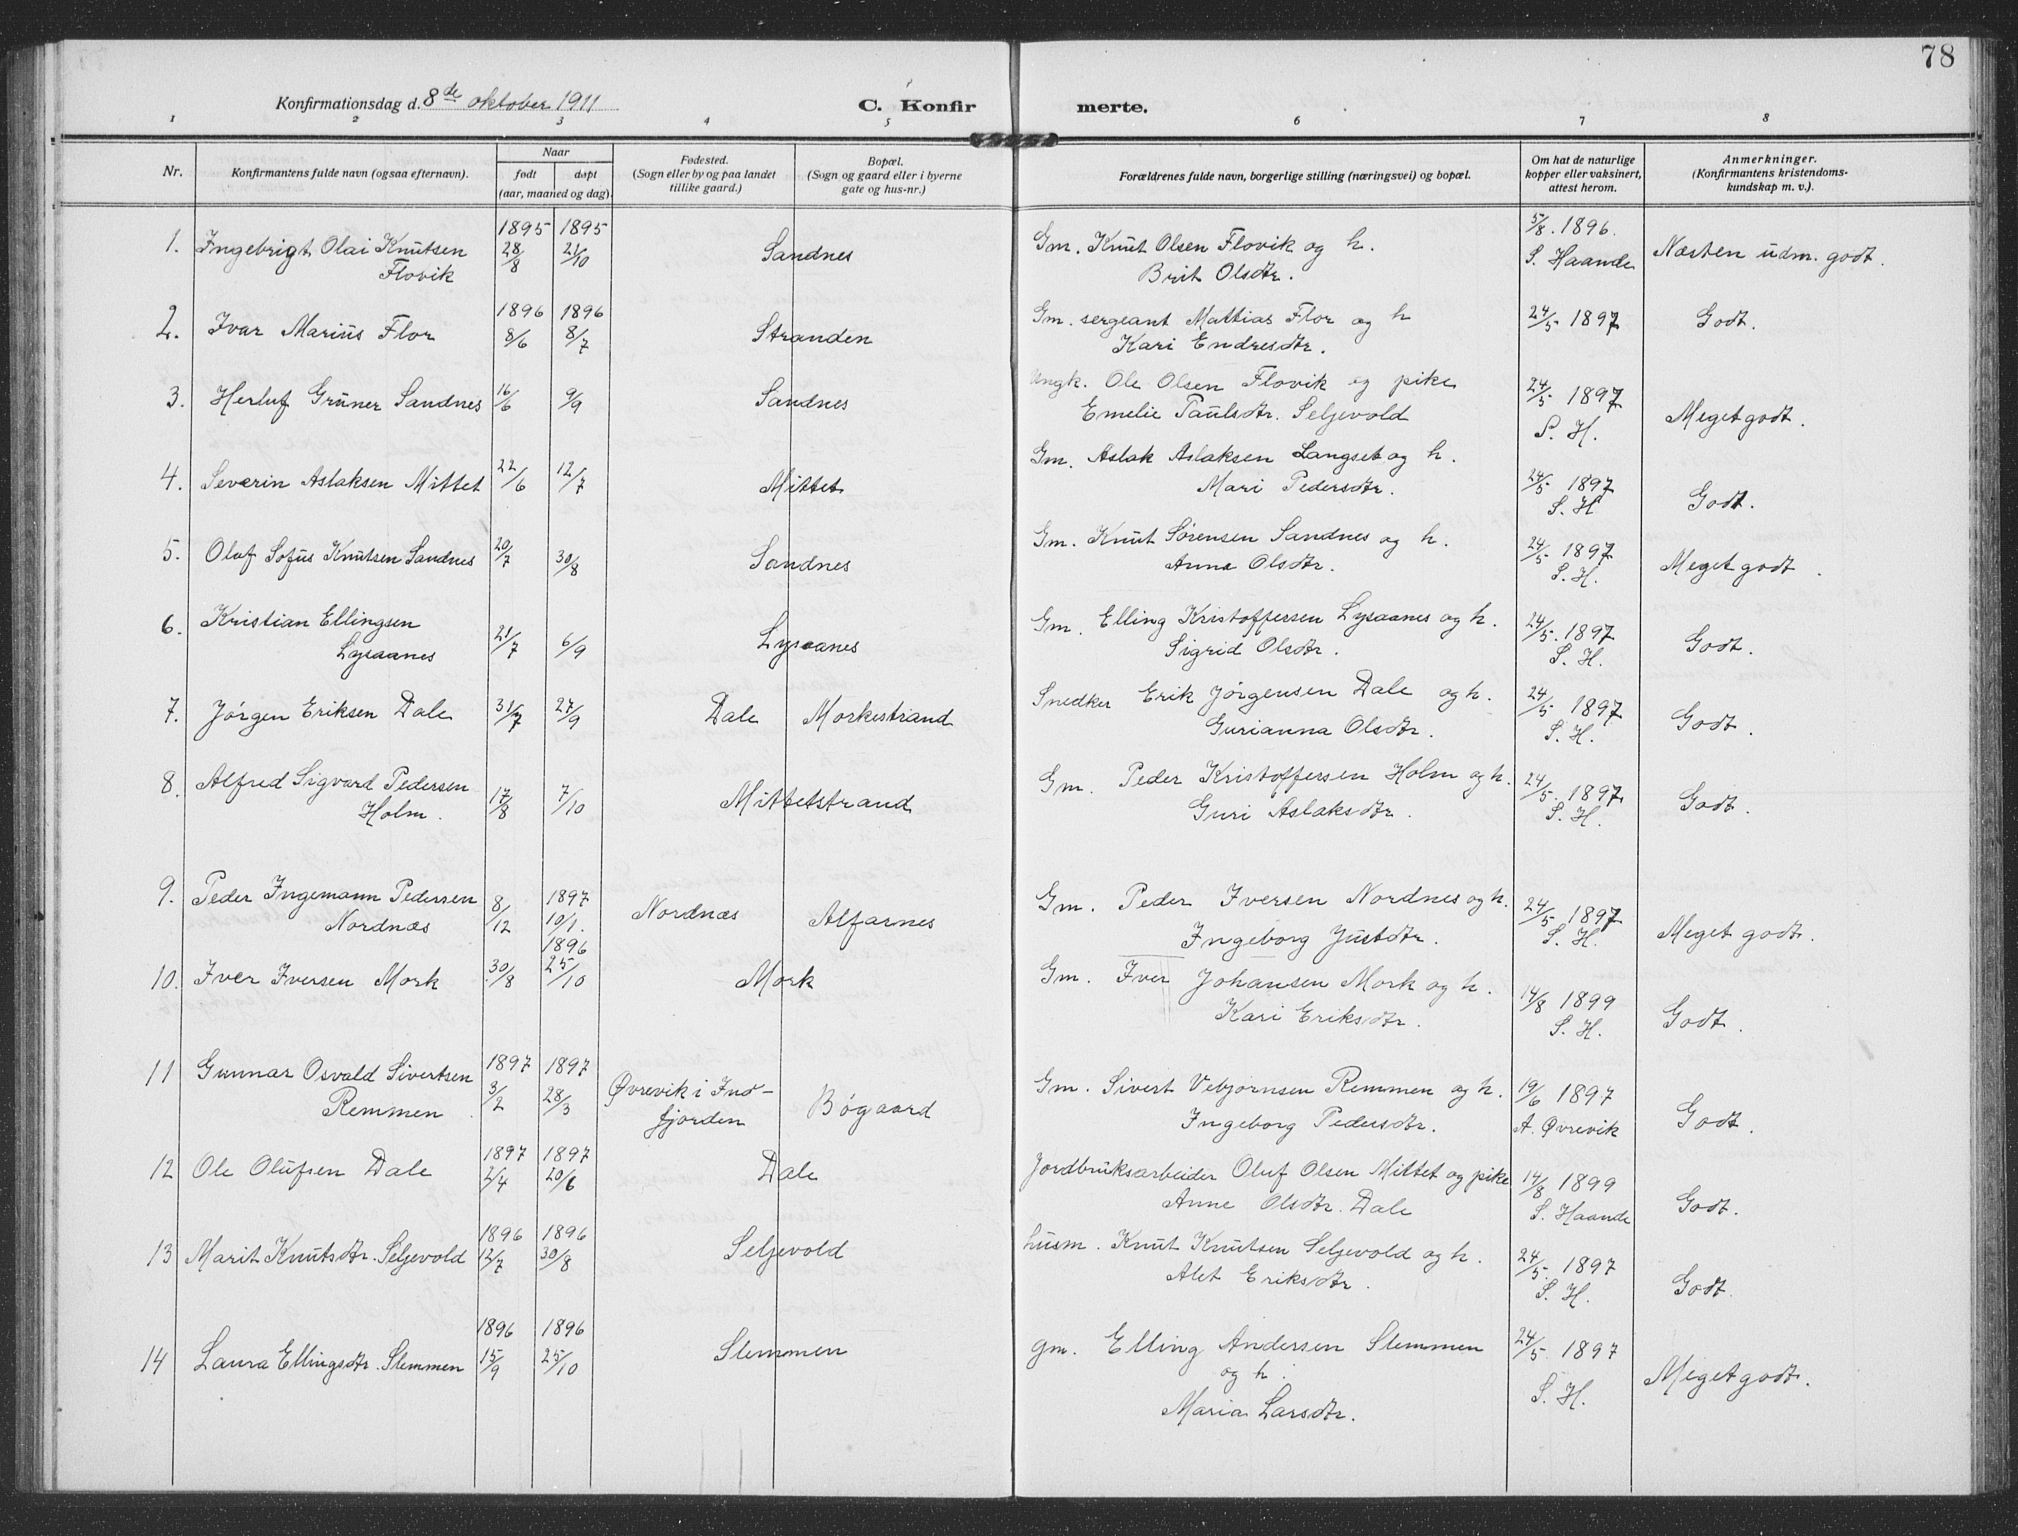 78
Konfirmationsdag d. 8de oktober 1911 C. Konfir merte.
1 2 3 4 5 6 7 8
Nr. Konfirmantens fulde navn (ogsaa efternavn). Naar født døpt (aar, maaned og dag). Fødested. (Sogn eller by og paa landet tillike gaard.) Bopæl. (Sogn og gaard eller i byerne gate og hus-nr.) Forældrenes fulde navn, borgerlige stilling (næringsvei) og bopæl. Om hat de naturlige kopper eller vaksinert, attest herom. Anmerkninger. (Konfirmantens kristendoms-kundskap m. v.).
1. Ingebrigt Olai Knutsen 1895 28/8 1895 21/10 Sandnes Gm. Knut Olsen Flovik og h. 5/8 1896. Næsten udm. godt.
Flovik Brit Olsdtr. S. Haande
2. Ivar Marius Flor 1896 8/6 1896 8/7 Stranden Gm. sergeant Mattias Flor og h 24/5 1897 Godt.
Kari Endresdtr.
3. Herluf Grüner Sandnes 16/6 9/9 Sandnes Ungk. Ole Olsen Flovik og pike 24/5 1897 Meget godt.
Emelie Paulsdtr. Seljevold S. H.
4. Severin Aslaksen Mittet 22/6 12/7 Mittet Gm. Aslak Aslaksen Langset og h. 24/5 1897 Godt.
Mari Pedersdtr. S. H
5. Oluf Sofus Knutsen Sandnes 20/7 30/8 Sandnes Gm. Knut Sørensen Sandnes og h. 24/5 1897 Meget godt.
Anna Olsdtr. S. H.
6. Kristian Ellingsen 21/7 6/9 Lysaanes Gm. Elling Kristoffersen Lysaanes og h. 24/5. 1897 Godt.
Lysaanes Sigrid Olsdtr. S. H.
7. Jørgen Eriksen Dale 31/7 27/9 Dale Morkestrand Snedker Erik Jørgensen Dale og h. 24/5 1897 Godt.
Gurianna Olsdtr. S. H.
8. Alfred Sigvard Pedersen 17/8 7/10 Mittetstrand Gm. Peder Kristoffersen Holm og h. 24/5. 1897 Godt.
Holm. Guri Aslaksdtr. S. H.
9. Peder Ingemann Pedersen 8/12 1897 10/1. Nordnæs Alfarnes Gm. Peder Iversen Nordnes og h. 24/5 1897 Meget godt.
Nordnæs Ingeborg Justdtr. S. H.
10. Iver Iversen Mork 30/8 1896 25/10 Mork Gm. Iver Johansen Mork og h. 14/8 1899 Godt.
Kari Eriksdtr. S. H.
11 Gunnar Osvald Sivertsen 1897 3/2 1897 28/3 Øvrevik i Ind- Bøgaard Gm. Sivert Vebjørnsen Remmen og h. 19/6 1897 Godt.
Remmen. fjorden Ingeborg Pedersdtr. A. Øvrevik
12 Ole Olufsen Dale 1897 2/4 1897 20/6 Dale Jordbruksarbeider Oluf Olsen Mittet og pike 14/8 1899 Godt.
Anne Olsdtr. Dale S. Haande
13 Marit Knutsdtr. Seljevold 1896 12/7 1896 30/8 Seljevold husm. Knut Knutsen Seljevold og h. 24/5. 1897 Godt.
Alet Eriksdtr. S. H.
14 Laura Ellingsdtr. Slemmen 1896 15/9 1896 25/10 Slemmen gm. Elling Andersen Slemmen 24/5. 1897 Meget godt.
og h. S. H.
Maria Larsdtr.